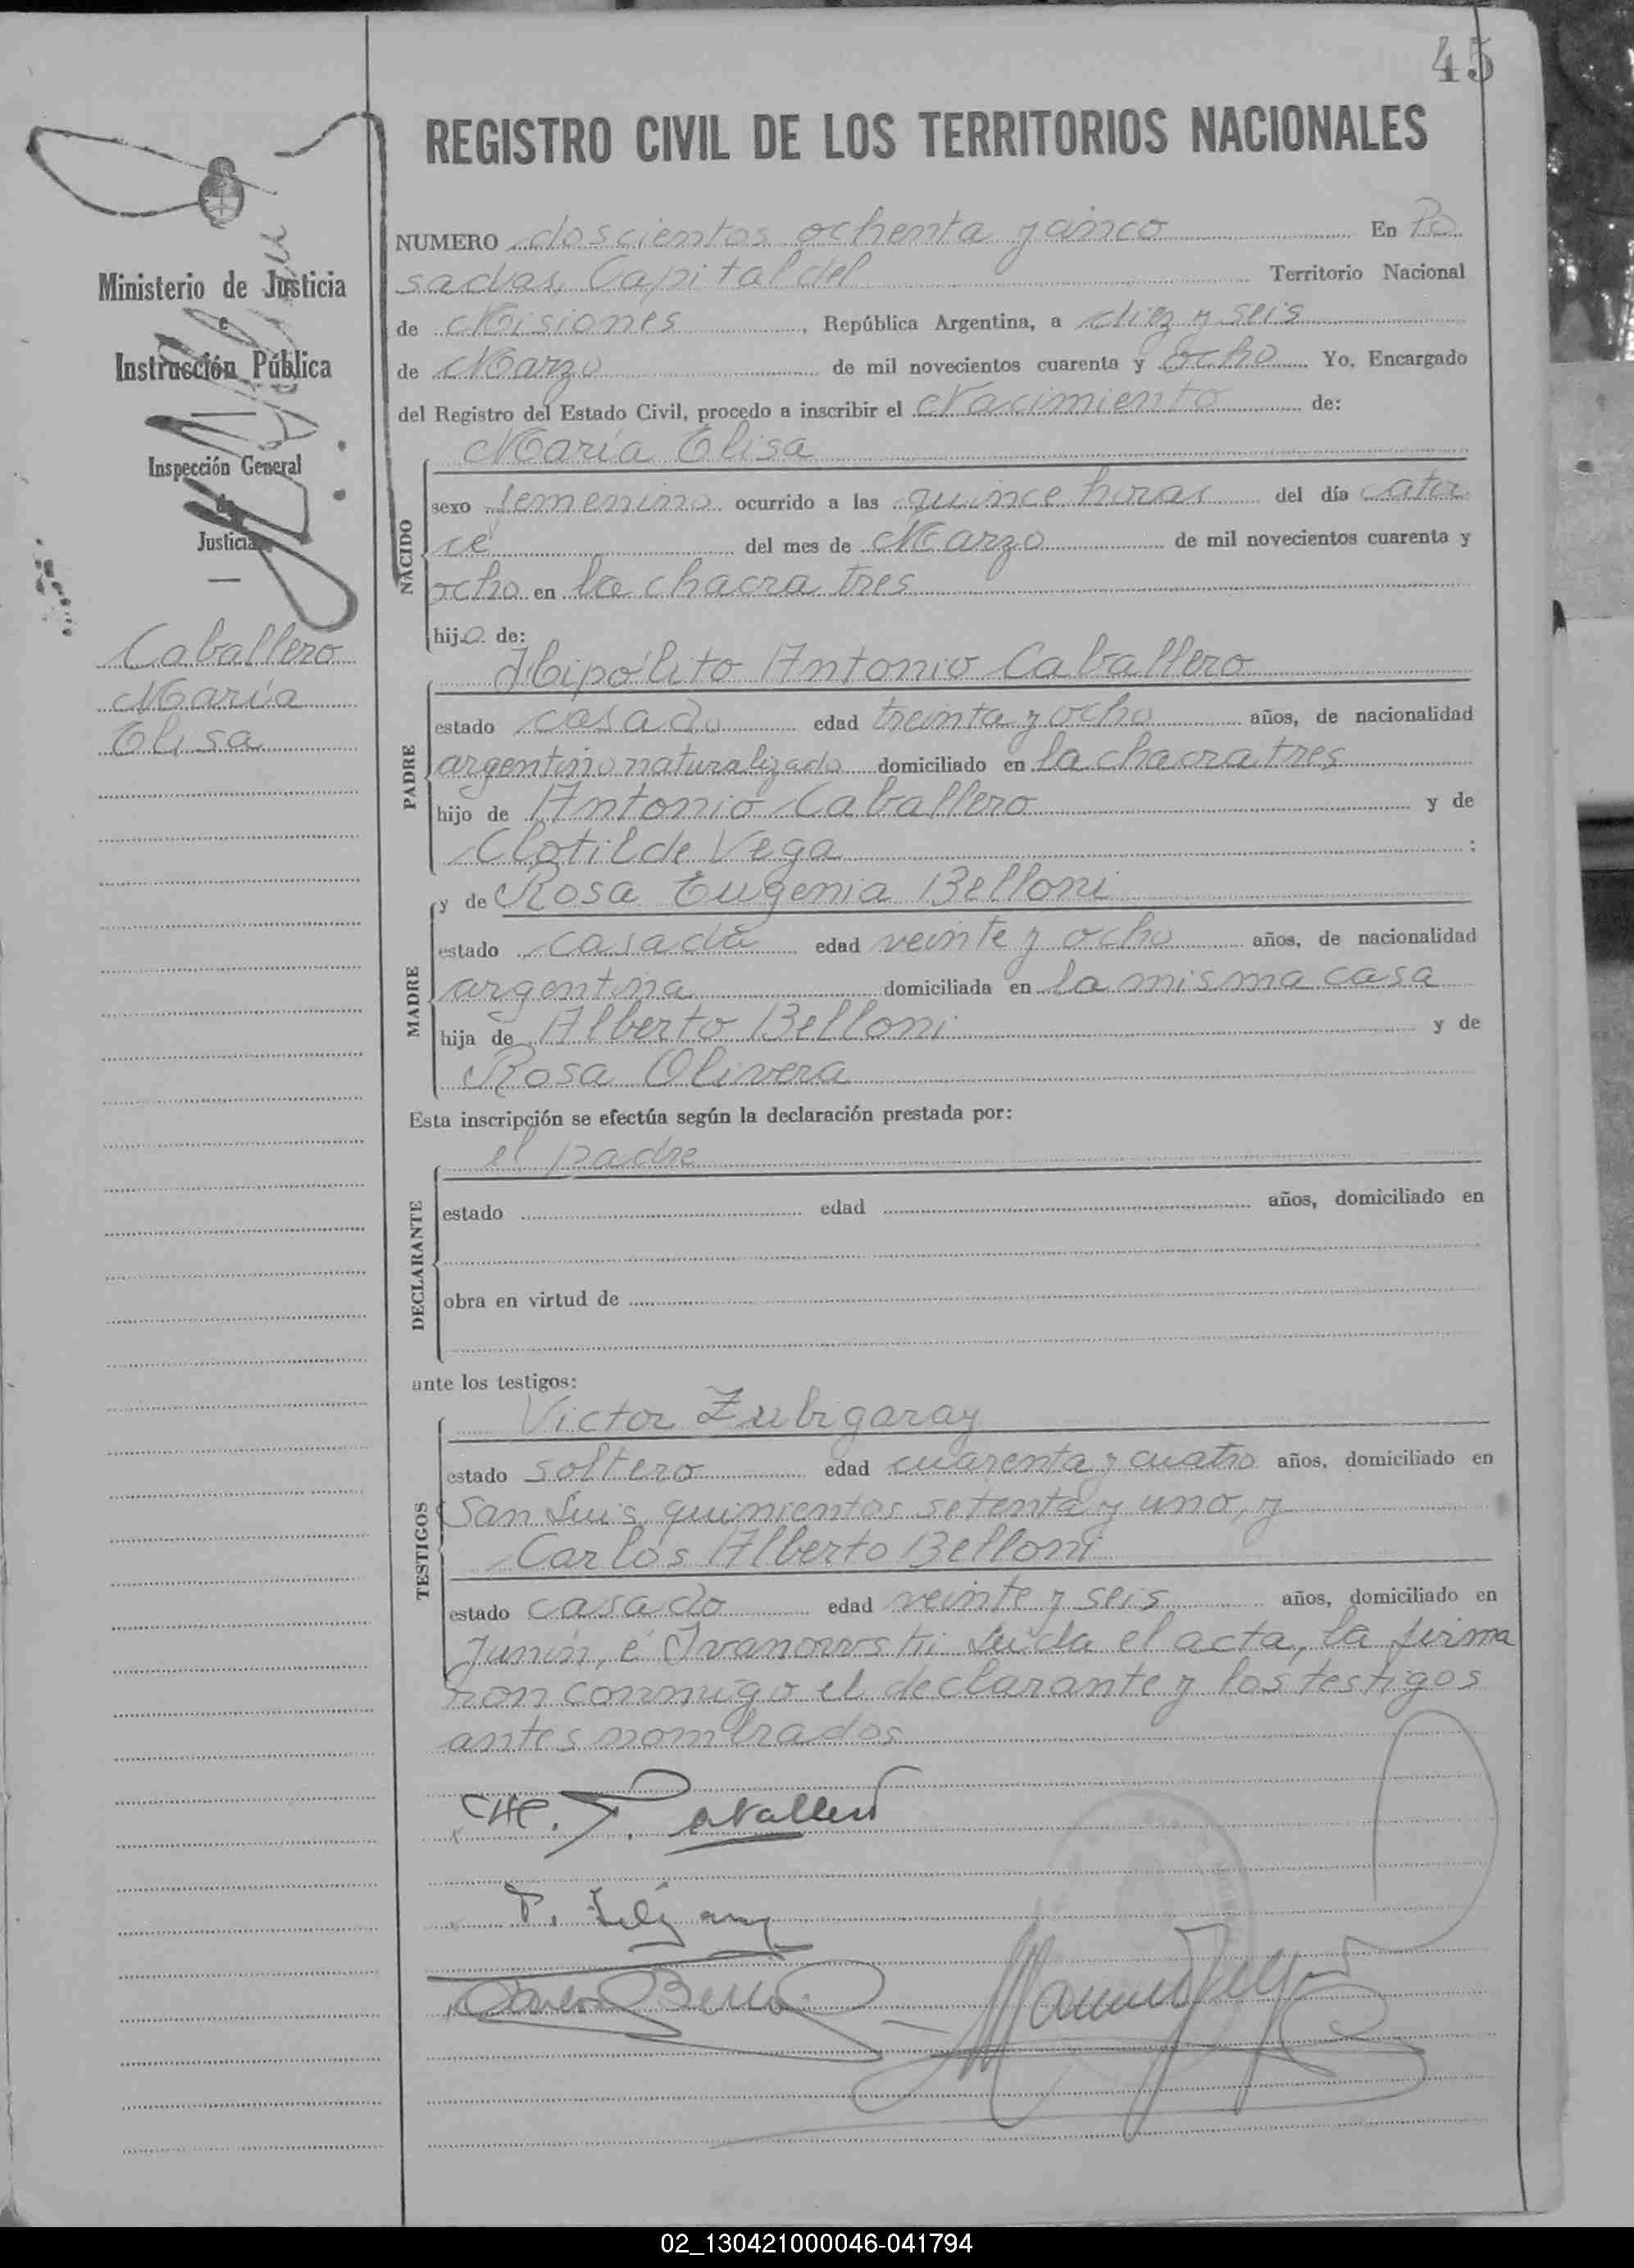 45
REGISTRO CIVIL DE LOS TERRITORIOS NACIONALES
NUMERO doscientos ochenta y cinco En Po
sadas, Capital del Territorio Nacional
de Misiones, República Argentina, a diez y seis
de Marzo de mil novecientos cuarenta y ocho Yo, Encargado
del Registro del Estado Civil, procedo a inscribir el Nacimiento de:
Ministerio de Justicia
e
Instrucción Pública
Inspección General
de
Justicia
Caballero
María
Elisa
NACIDO
María Elisa
sexo femenino ocurrido a las quince horas del día cator
ce del mes de Marzo de mil novecientos cuarenta y
ocho en la chacra tres
hija de:
PADRE
Hipólito Antonio Caballero
estado casado edad treinta y ocho años, de nacionalidad
argentino naturalizado domiciliado en la chacra tres
hijo de Antonio Caballero y de
Clotilde Vega :
MADRE
y de Rosa Eugenia Belloni
estado casada edad veinte y ocho años, de nacionalidad
argentina domiciliada en la misma casa
hija de Alberto Belloni y de
Rosa Olivera
Esta inscripción se efectúa según la declaración prestada por:
DECLARANTE
el padre
estado edad años, domiciliado en
obra en virtud de
ante los testigos:
TESTIGOS
Victor Zubigaray
estado soltero edad cuarenta y cuatro años, domiciliado en
San Luis quinientos setenta y uno, y
Carlos Alberto Belloni
estado casado edad veinte y seis años, domiciliado en
Junín, é Ivanowski Leída el acta, la firma
ron conmigo el declarante y los testigos
antes nombrados
Caballero
Carlos Belloni
02_130421000046-041794